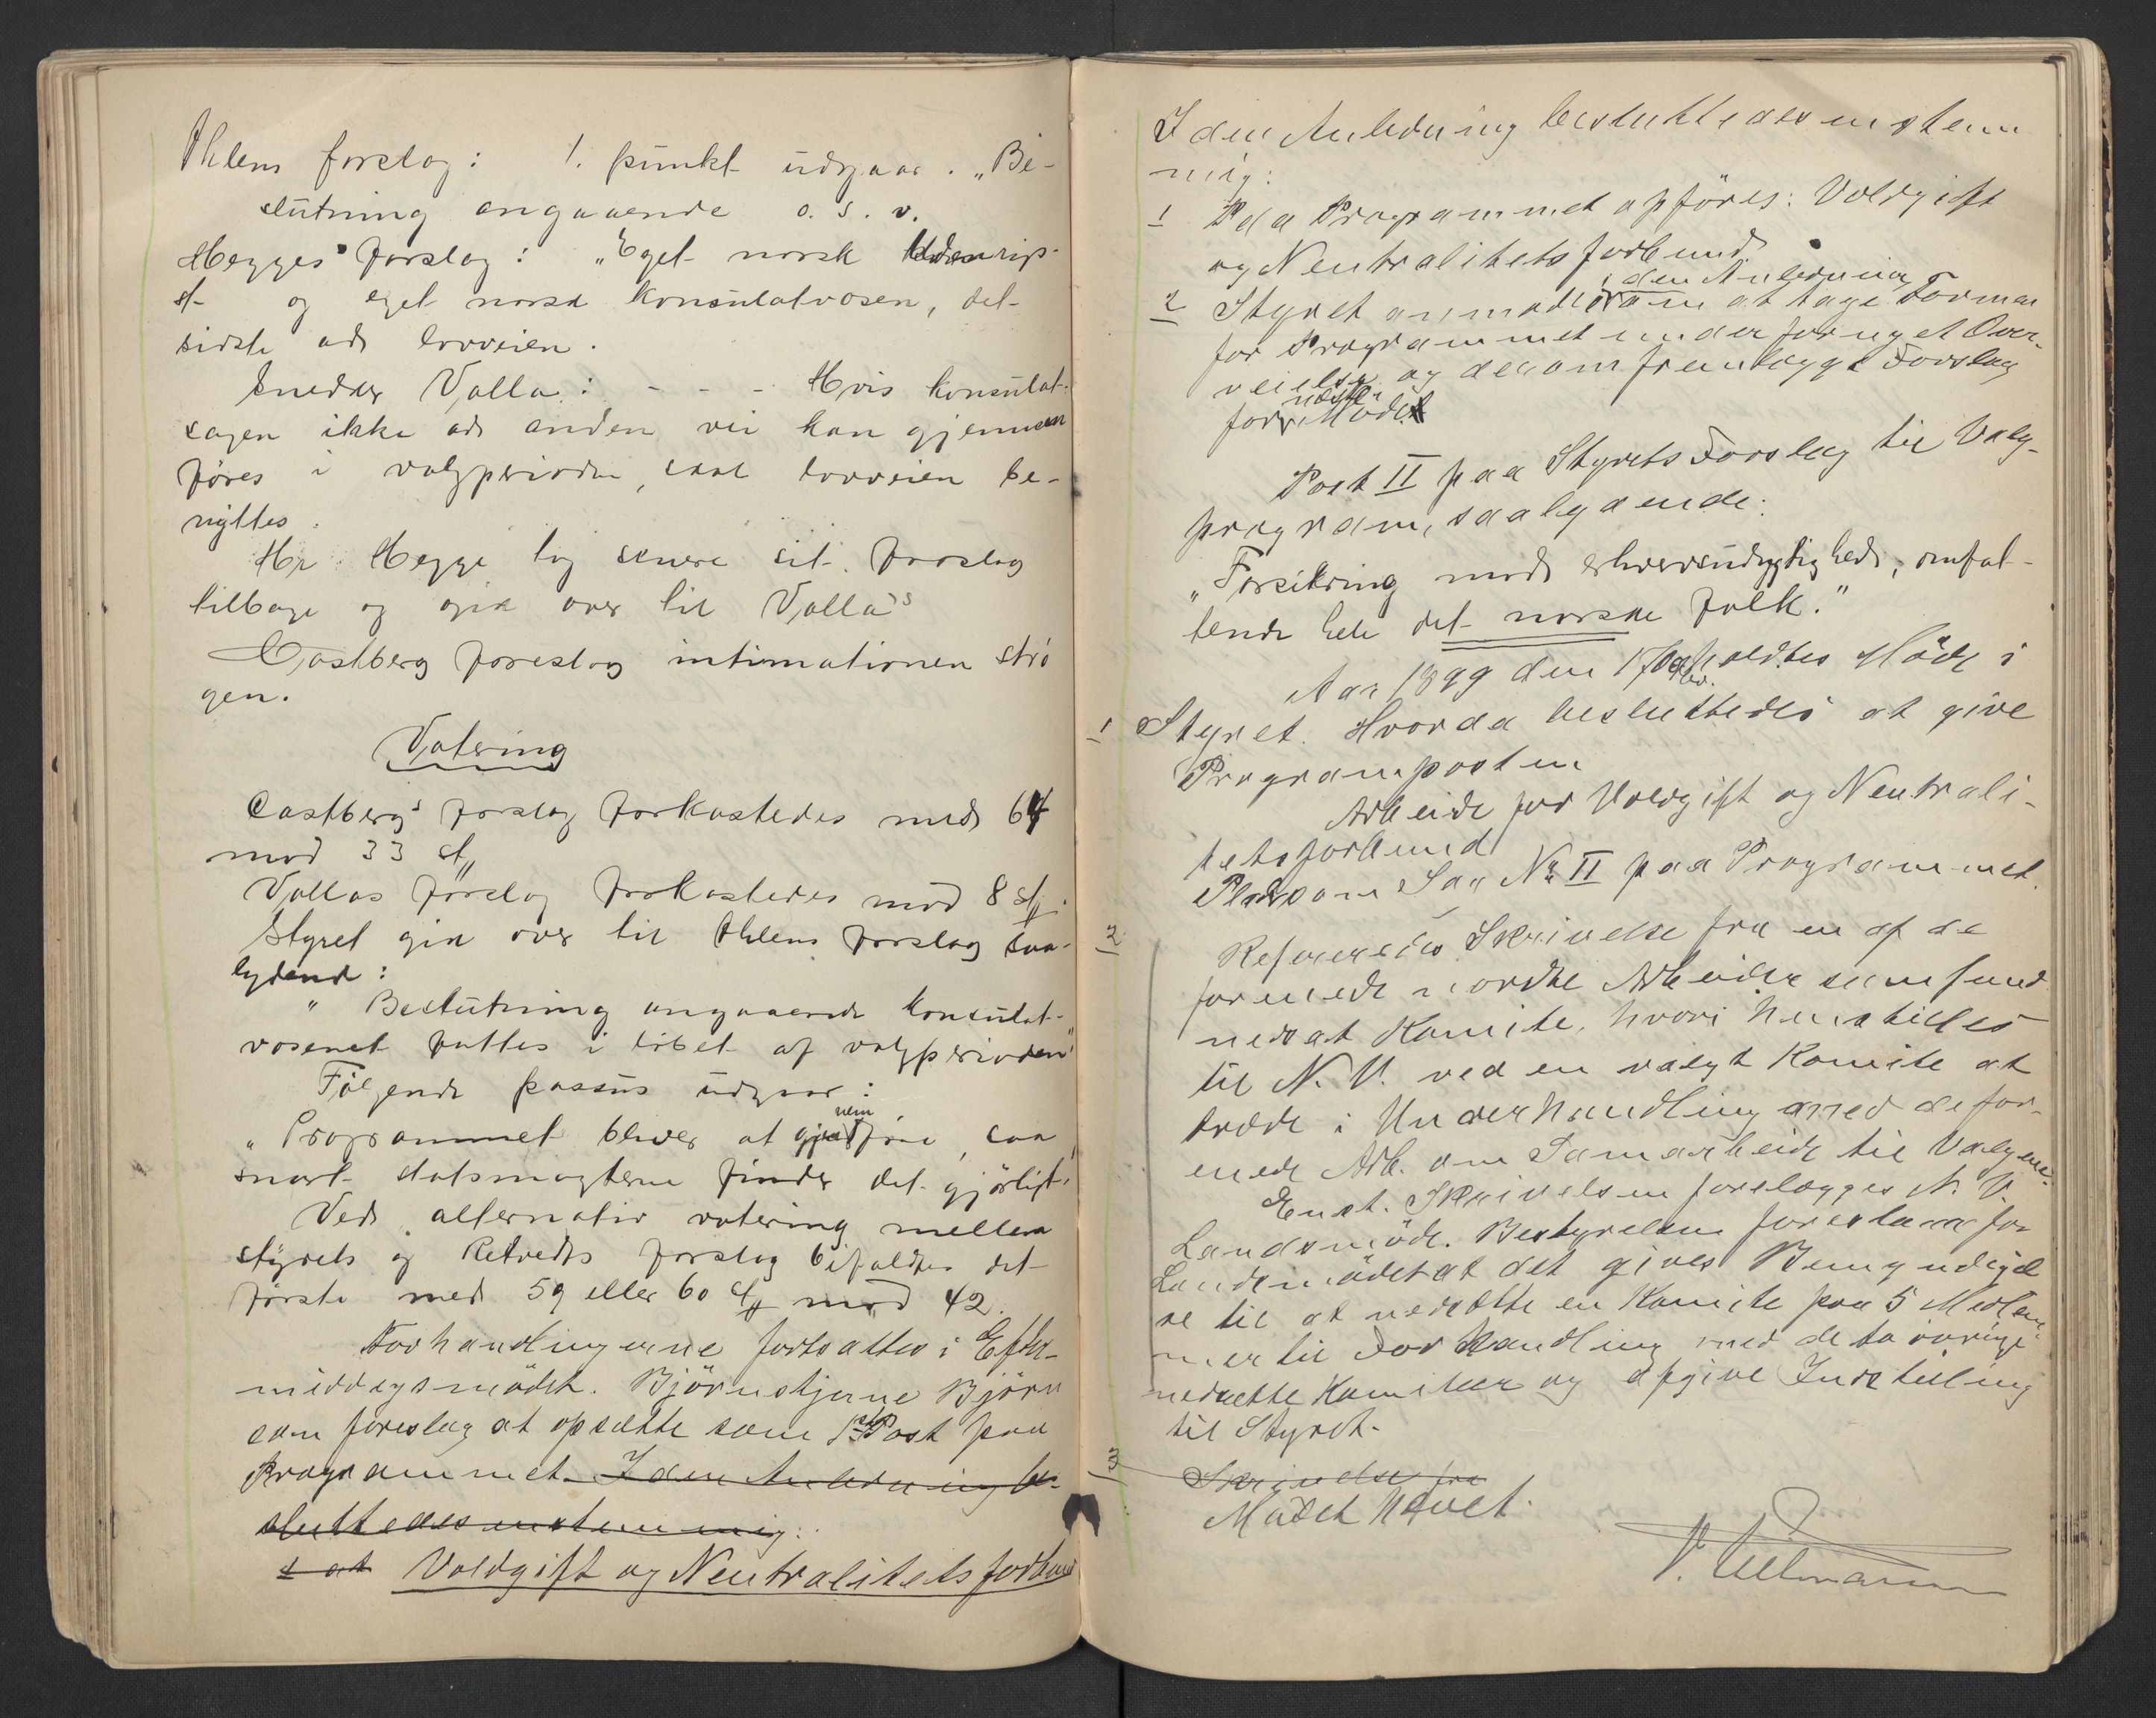 Ihlens forslag: 1. punkt udgaar. „Be-
slutning angaaende o. s. v.
Hegges forslag: „Eget norsk udenrigs-
st- og eget norsk konsulatvæsen, det
sidste ad lovveien.
Snedker Valla: - - - Hvis konsulat-
sagen ikke ad anden vei kan gjennem
føres i valgperioden, skal lovveien be-
nyttes.
Hr Hegge tog senere sit forslag
tilbage og gik over til Vallas
Castberg foreslog intimationen strø
gen.
Votering
Castbergs forslag forkastedes med 64
mod 33 st.
Vallas forslag forkastedes mod 8 st.
Styret gik over til Ihlens forslag saa-
lydende:
" Beslutning angaaende konsulat-
væsenet fattes i løbet af valgperioden"
Følgende passus udgaar:
„Programmet bliver at gjennemføre, saa
snart statsmagterne finder det gjørligt"
Ved alternativ votering mellem
styrets og Retvedts forslag bifaldtes det
første med 59 eller 60 st. mod 42.
Forhandlingerne fortsattes i Efter-
middagsmødet. Bjørnstjerne Bjørn
son foreslog at opsætte som 1ste Post paa
Programmet. I den Anledning be-
sluttedes enstemmig:
at Voldgift og Neutralitetsforbund
I den Anledning besluttedes enstem
mig:
1 Paa Programmet opføres: Voldgift
og Neutralitetsforbund.
i den Anledning
2 Styret anmodes om at tage Formen
for Programmet under fornyet Over-
veielse og derom fremlægge Forslag
for næste Møde
Post II paa Styrets Forslag til Valg-
program, saalydende:
„Forsikring mod erhvervsudygtighed, omfat-
tende hele det norske folk."
Aar 1899 den 17 holdtes Møde i
1 Styret. Hvorda besluttedes at give
Programposten
Arbeide for Voldgift og Neutrali-
tetsforbund
Plads som Sag No II paa Programmet.
2 Refereredes Skrivelse fra en af de
forenede norske Arbeidersamfund
nedsat Komite, hvori henstilles
til N. V. ved en valgt Komite at
træde i Underhandling med de for-
enede Arb. om Samarbeide til Valgene.
Enst. Skrivelsen forelægges N. V.
Landsmøde. Bestyrelsen foreslaar for
Landsmødet at det gives Bemyndigel
se til at nedsætte en Komite paa 5 Medlem-
mer til Forhandling med de to øvrige
nedsatte Komiteer og afgive Indstilling
til Styret.
3 Skrivelse fra
Mødet hævet.
V. Ullmann